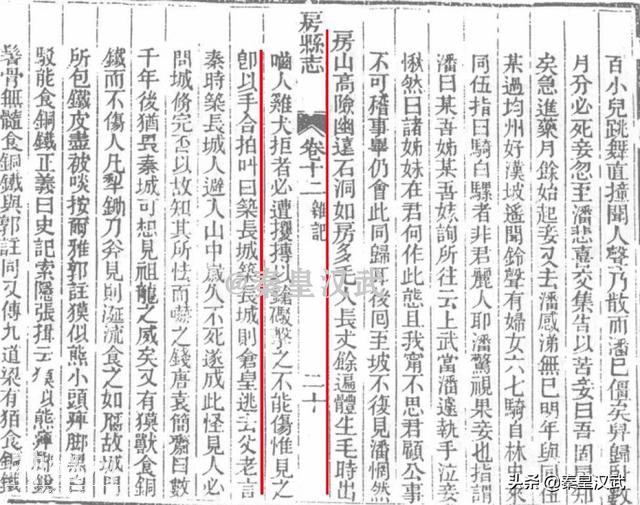 百小兒跳舞直撞聞人聲乃散而潘巳僵矣舁歸所數
月分必死妾忽至潘悲喜交集告以苦妾曰吾固
矣急進藥月餘始起妾又去潘感涕無巳明年與同
某過均州好漢坡遙聞鈴聲有婦女六七騎自林出來
同伍指曰騎白騾者非君麗人耶潘驚視果妾也指謂
潘曰某吾姊某吾妹詢所往云上武當潘遽執手泣妾
愀然曰諸姊妹在君何作此態且我甯不思君顧公事
不可稽事畢仍會此同歸耳後囘至坡不復見潘惘然
房山高險幽遠石洞如房多人長丈餘遍體生毛時出
房縣志 卷十二 雜記 二十
嚙人雞犬拒者必遭攫搏以鎗礮擊之不能傷惟見之
卽以手合拍叫曰築長城築長城則倉皇逃去父老言
秦時築長城人避入山中歲久不死遂成此怪見人必
問城修完否以故知其所怯而嚇之錢唐袁簡齋曰數
千年後猶畏秦城可想見祖龍之威矣又有獏獸食銅
鐵而不傷人凡犁鋤刀斧見則涎流食之如腐故城門
所包鐵皮盡被啖按爾雅郭註獏似熊小頭痺脚黑白
駁能食銅鐵正義曰史記索隱張揖云獏以熊痺脚銳
鬐骨無髓食銅鐵與郭註同又傳九道梁有狛食銅鐵
@秦皇汉武
头条 @秦皇汉武